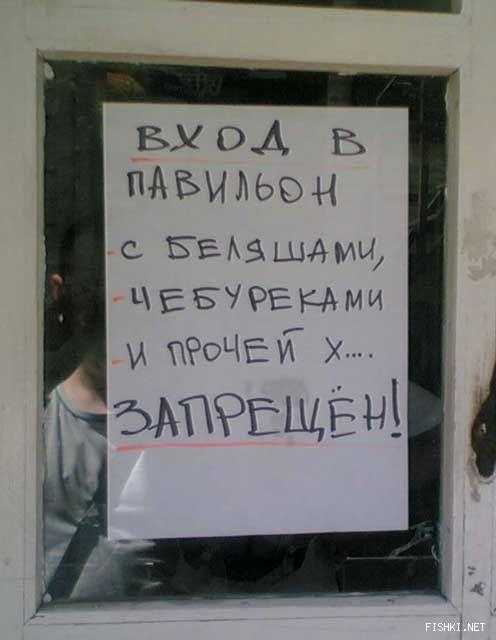 ВХОД В
ПАВИЛЬОН
- С БЕЛЯШАМИ,
- ЧЕБУРЕКАМИ
- И ПРОЧЕЙ Х....
ЗАПРЕЩЁН!
FISHKI.NET